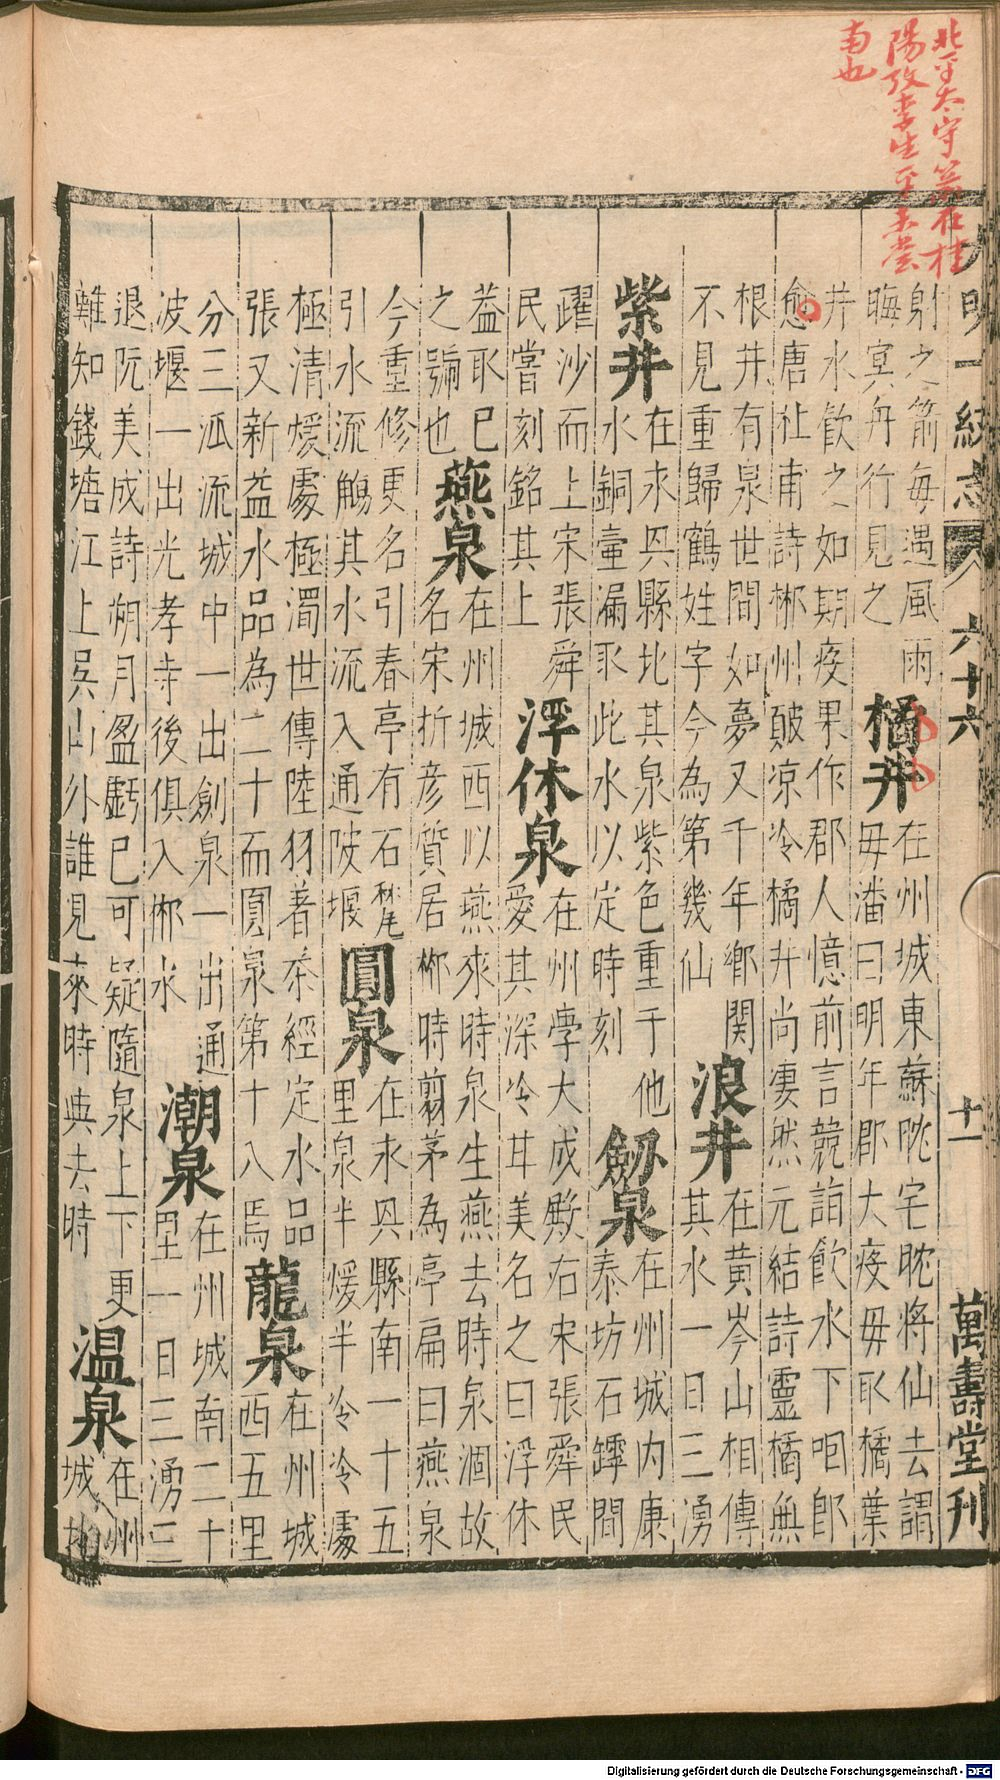 北平太守箭在桂
陽攷李生平未嘗
南也
大明一統志 六十六 十一 萬壽堂刊
射之箭每遇風雨
晦冥舟行見之
橘井
在州城東蘇眺宅眺將仙去謂
母潘曰明年郡大疫母取橘葉
井水飲之如期疫果作郡人憶前言競詣飲水下咽即
愈唐杜甫詩郴州頗凉冷橘井尚凄然元結詩靈橘無
根井有泉世間如夢又千年鄉關
不見重歸鶴姓字今為第幾仙
浪井
在黃岑山相傳
其水一日三湧
紫井
在永興縣北其泉紫色重于他
水銅壷漏取此水以定時刻
劔泉
在州城内康
泰坊石罅間
躍沙而上宋張舜
民嘗刻銘其上
浮休泉
在州學大成殿右宋張舜民
愛其深冷甘美名之曰浮休
益取巳
之號也
燕泉
在州城西以燕來時泉生燕去時泉涸故
名宋折彦質居郴時剪茅為亭扁曰燕泉
今重修更名引春亭有石林尾
引水流觴其水流入通陂堰
圓泉
在永興縣南一十五
里泉半煖半冷冷處
極清煖處極濁世傳陸羽著茶經定水品
張又新益水品為二十而圓泉第十八焉
龍泉
在州城
西五里
分三派流城中一出劍泉一出通
波堰一出光孝寺後俱入郴水
潮泉
在州城南二十
里一日三湧三
退阮美成詩朔月盈虧已可疑隨泉上下更
難知錢塘江上吳山外誰見來時與去時
温泉
在州
城北
Digitalisierung gefördert durch die Deutsche Forschungsgemeinschaft - DFG